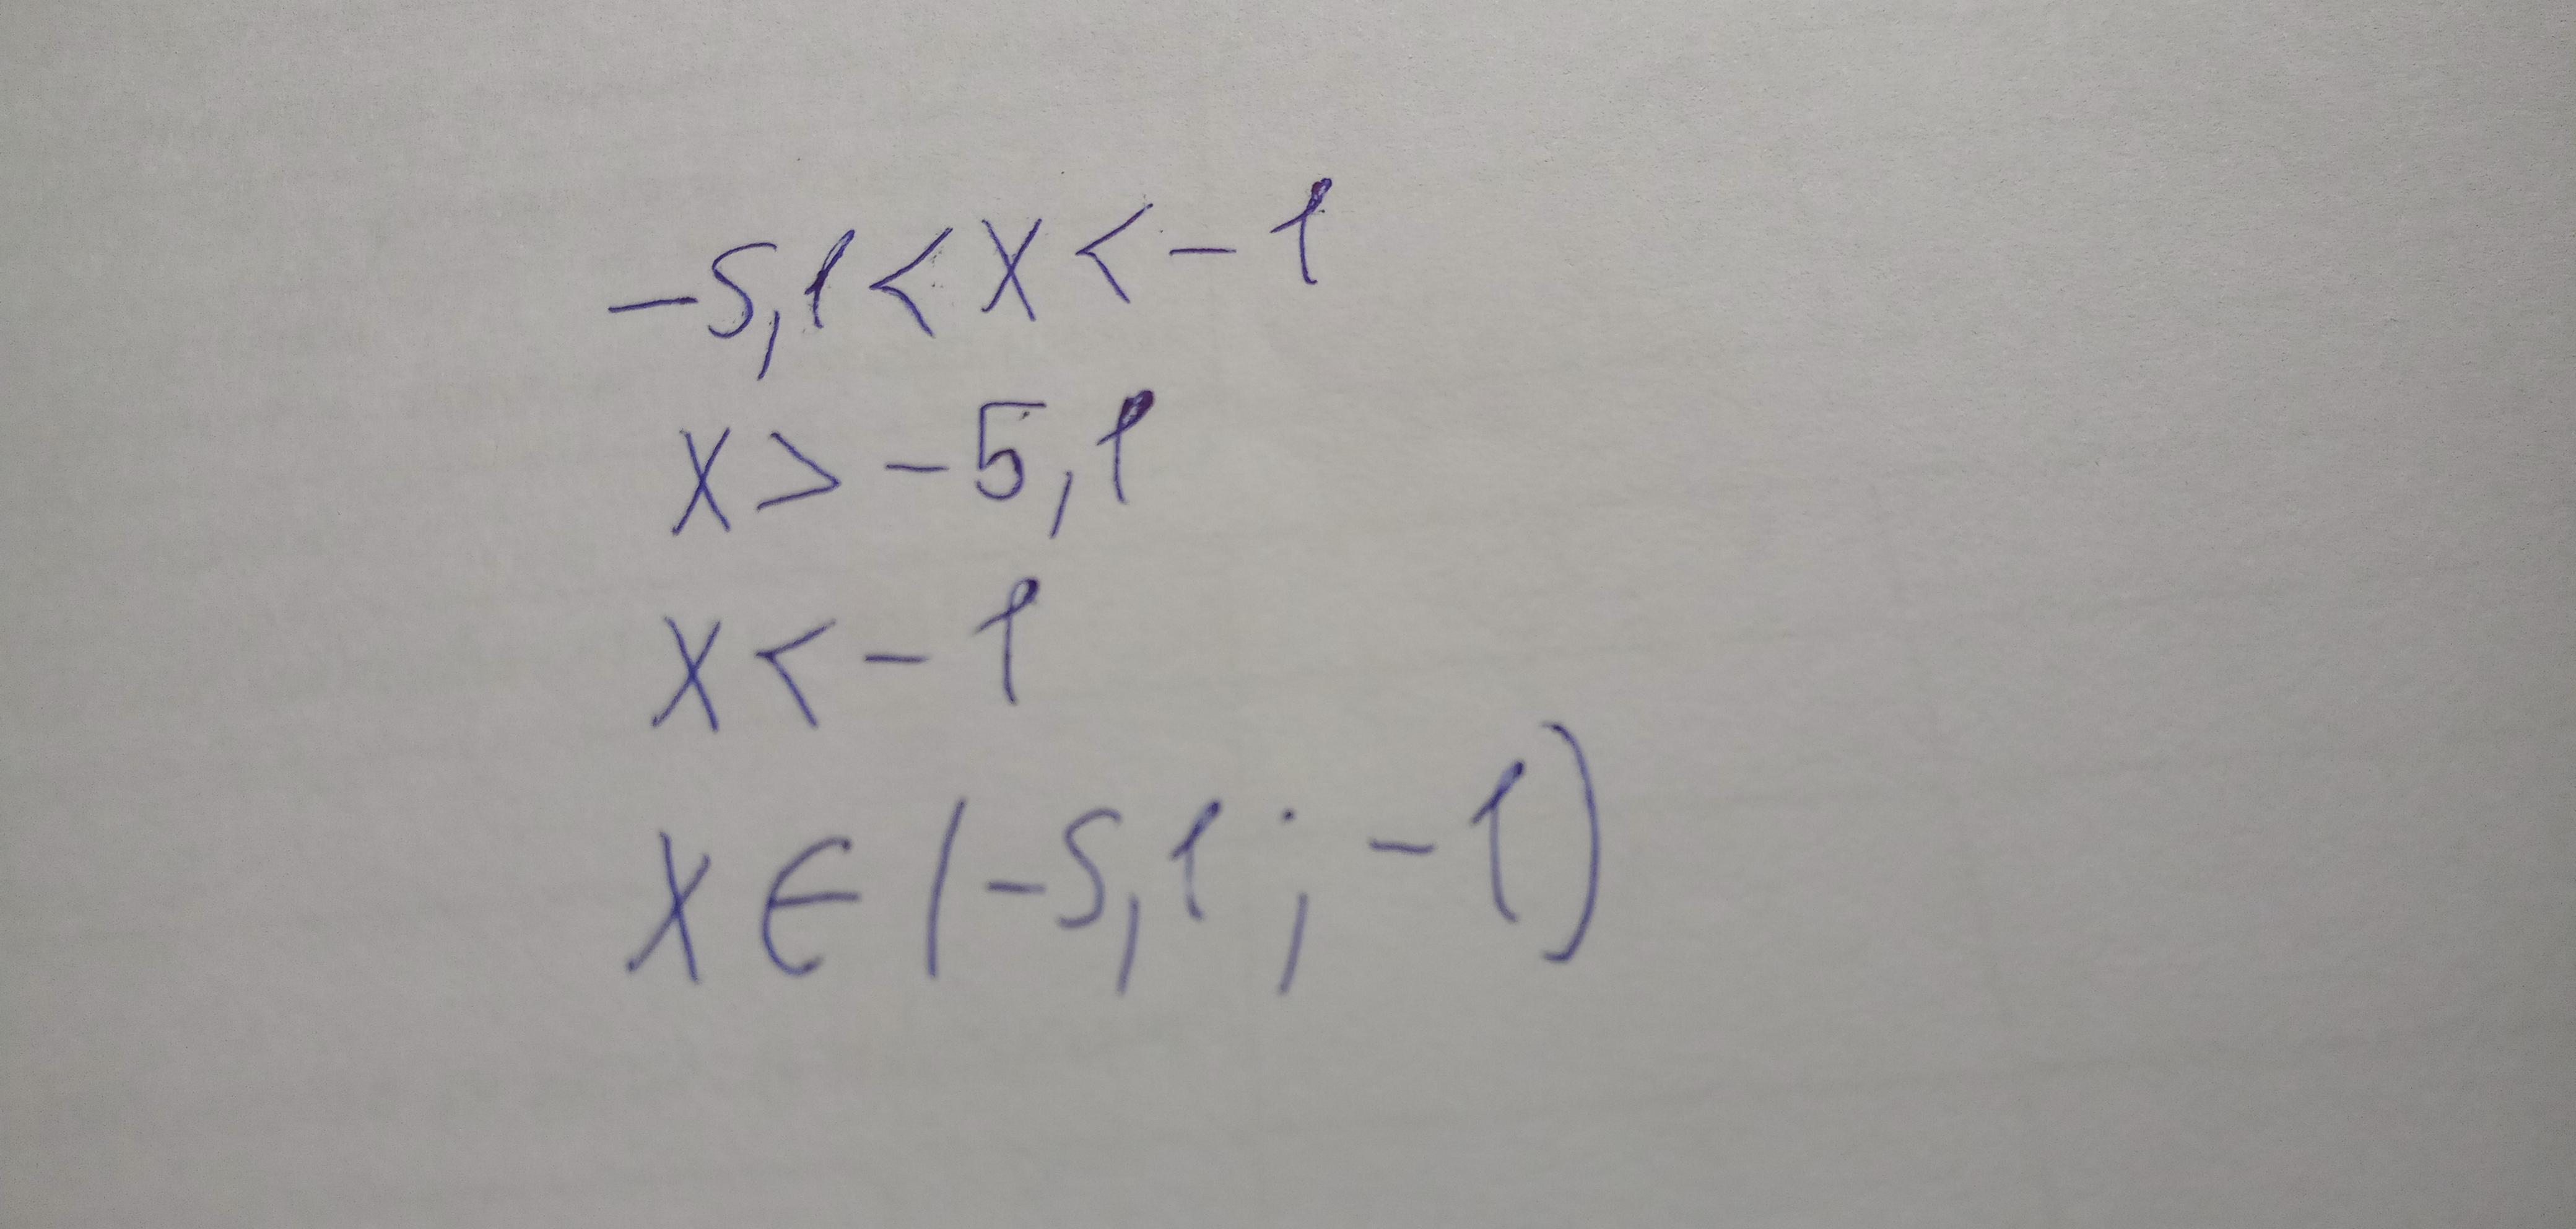 -5,1 < x < -1
x > -5,1
x < -1
x ∈ (-5,1 ; -1)